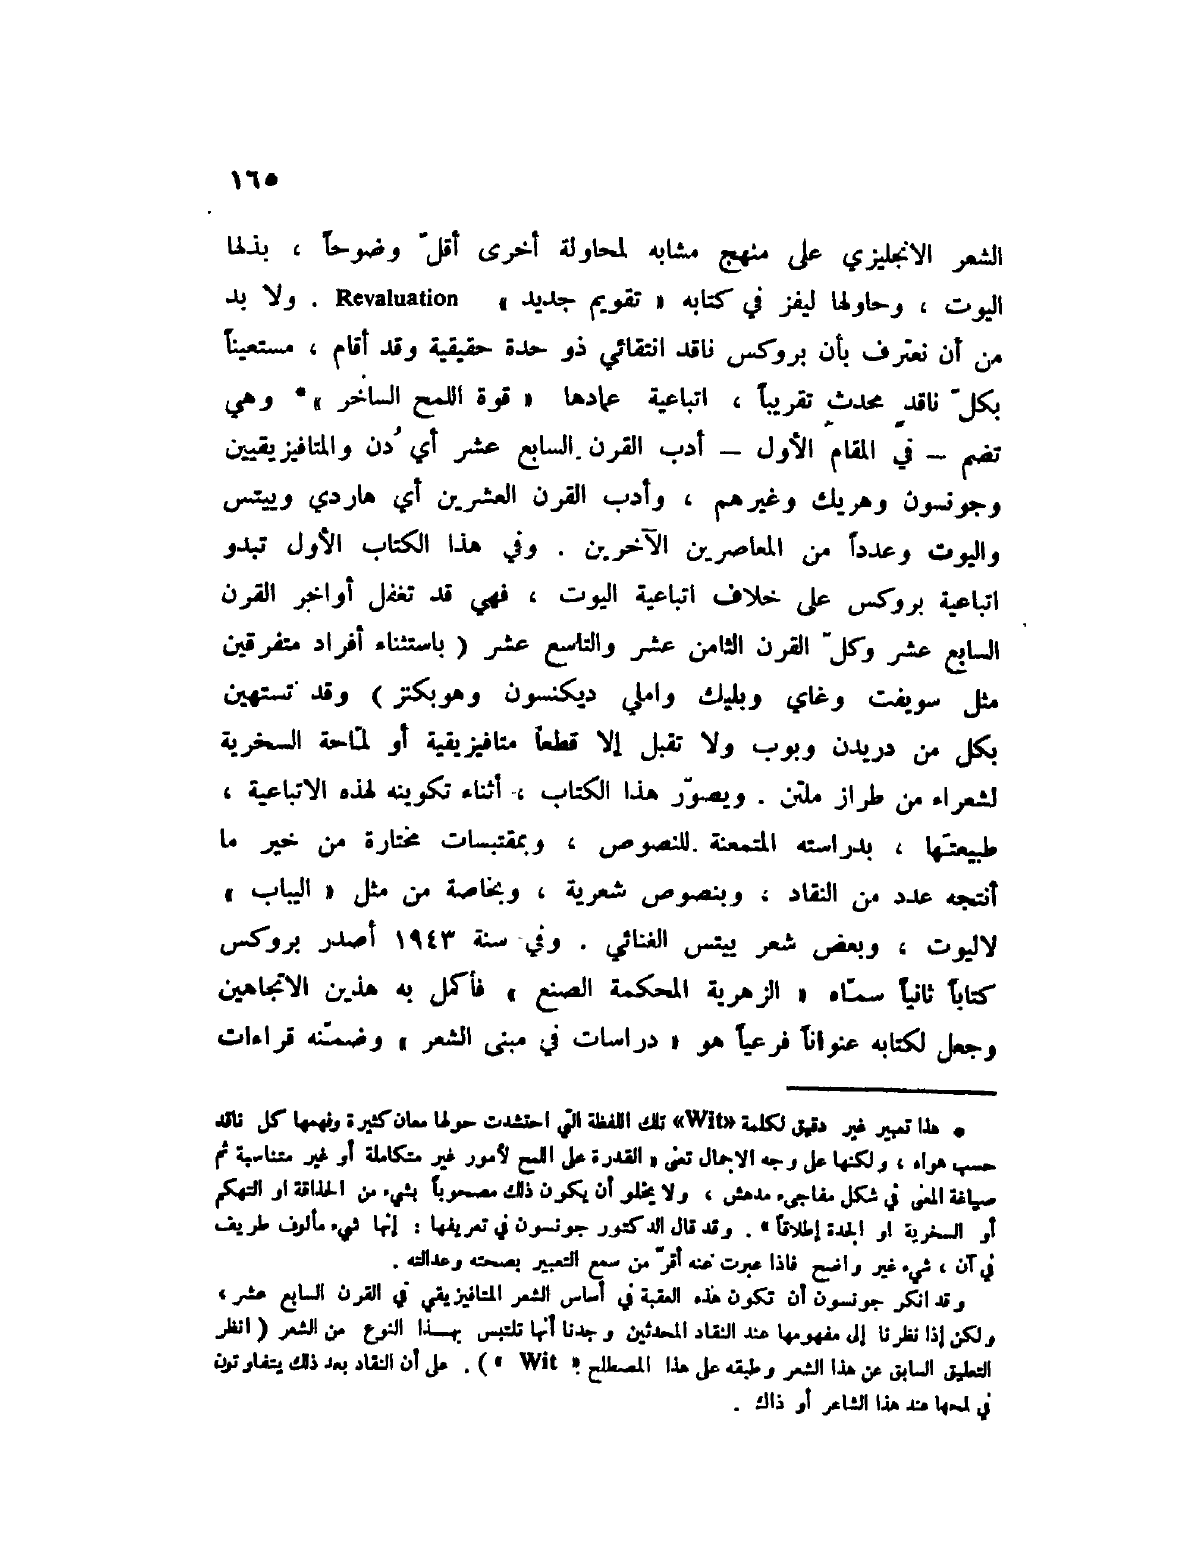 ١٦٥
الشعر الانجليزي على منهج مشابه لمحاولة أخرى أقلّ وضوحاً ، بذلها
اليوت ، وحاولها ليفز في كتابه « تقويم جديد » Revaluation . ولا بد
من أن نعترف بأن بروكس ناقد انتقائي ذو حدة حقيقية وقد أقام ، مستعيناً
بكلّ ناقدٍ محدثٍ تقريباً ، اتباعية عمادها « قوة اللمح الساخر »* وهي
تضم – في المقام الأول – أدب القرن السابع عشر أي دُن والمتافيزيقيين
وجونسون وهريك وغيرهم ، وأدب القرن العشرين أي هاردي وييتس
واليوت وعدداً من المعاصرين الآخرين . وفي هذا الكتاب الأول تبدو
اتباعية بروكس على خلاف اتباعية اليوت ، فهي قد تغفل أواخر القرن
السابع عشر وكلّ القرن الثامن عشر والتاسع عشر ( باستثناء أفراد متفرقين
مثل سويفت وغاي وبليك واملي ديكنسون وهوبكنز ) وقد تستهين
بكل من دريدن وبوب ولا تقبل إلا قطعاً متافيزيقية أو لمّاحة السخرية
لشعراء من طراز ملتن . ويصوّر هذا الكتاب ، أثناء تكوينه لهذه الاتباعية ،
طبيعتَها ، بدراسته المتمعنة للنصوص ، وبمقتبسات مختارة من خير ما
أنتجه عدد من النقاد ؛ وبنصوص شعرية ، وبخاصة من مثل « اليباب »
لاليوت ، وبعض شعر ييتس الغنائي . وفي سنة ١٩٤٣ أصدر بروكس
كتاباً ثانياً سمّاه « الزهرية المحكمة الصنع » فأكمل به هذين الاتجاهين
وجعل لكتابه عنواناً فرعياً هو « دراسات في مبنى الشعر » وضمّنه قراءات
* هذا تعبير غير دقيق لكلمة «Wit» تلك اللفظة التي احتشدت حولها معان كثيرة وفهمها كل ناقد
حسب هواه ، ولكنها على وجه الاجمال تعني « القدرة على اللمح لأمور غير متكاملة أو غير متناسبة ثم
صياغة المعنى في شكل مفاجىء مدهش ، ولا يخلو أن يكون ذلك مصحوباً بشيء من الحذاقة او التهكم
أو السخرية او الجدة إطلاقاً » . وقد قال الدكتور جونسون في تعريفها : إنها شيء مألوف طريف
في آن ، شيء غير واضح فاذا عبرت عنه أقرّ من سمع التعبير بصحته وعدالته .
وقد انكر جونسون أن تكون هذه العقبة في أساس الشعر المتافيزيقي في القرن السابع عشر ،
ولكن إذا نظرنا إلى مفهومها عند النقاد المحدثين وجدنا أنها تلتبس بهذا النوع من الشعر ( انظر
التعليق السابق عن هذا الشعر وطبقه على هذا المصطلح « Wit » ) . على أن النقاد بعد ذلك يتفاوتون
في لمحها عند هذا الشاعر أو ذاك .